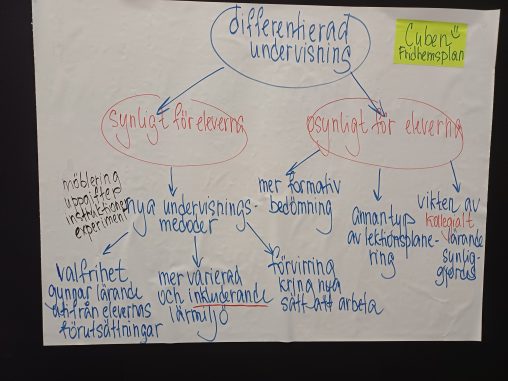 differentierad
undervisning
Cuben
Fridhemsplan
synligt för eleverna
osynligt för eleverna
möblering
uppgifter
instruktioner
experiment
nya undervisnings-
metoder
mer formativ
bedömning
annan typ
av lektionsplane-
ring
vikten av
kollegialt
lärande
synlig-
gjordes
valfrihet
gynnar lärande
utifrån elevernas
förutsättningar
mer varierad
och inkluderande
lärmiljö
förvirring
kring nya
sätt att arbeta